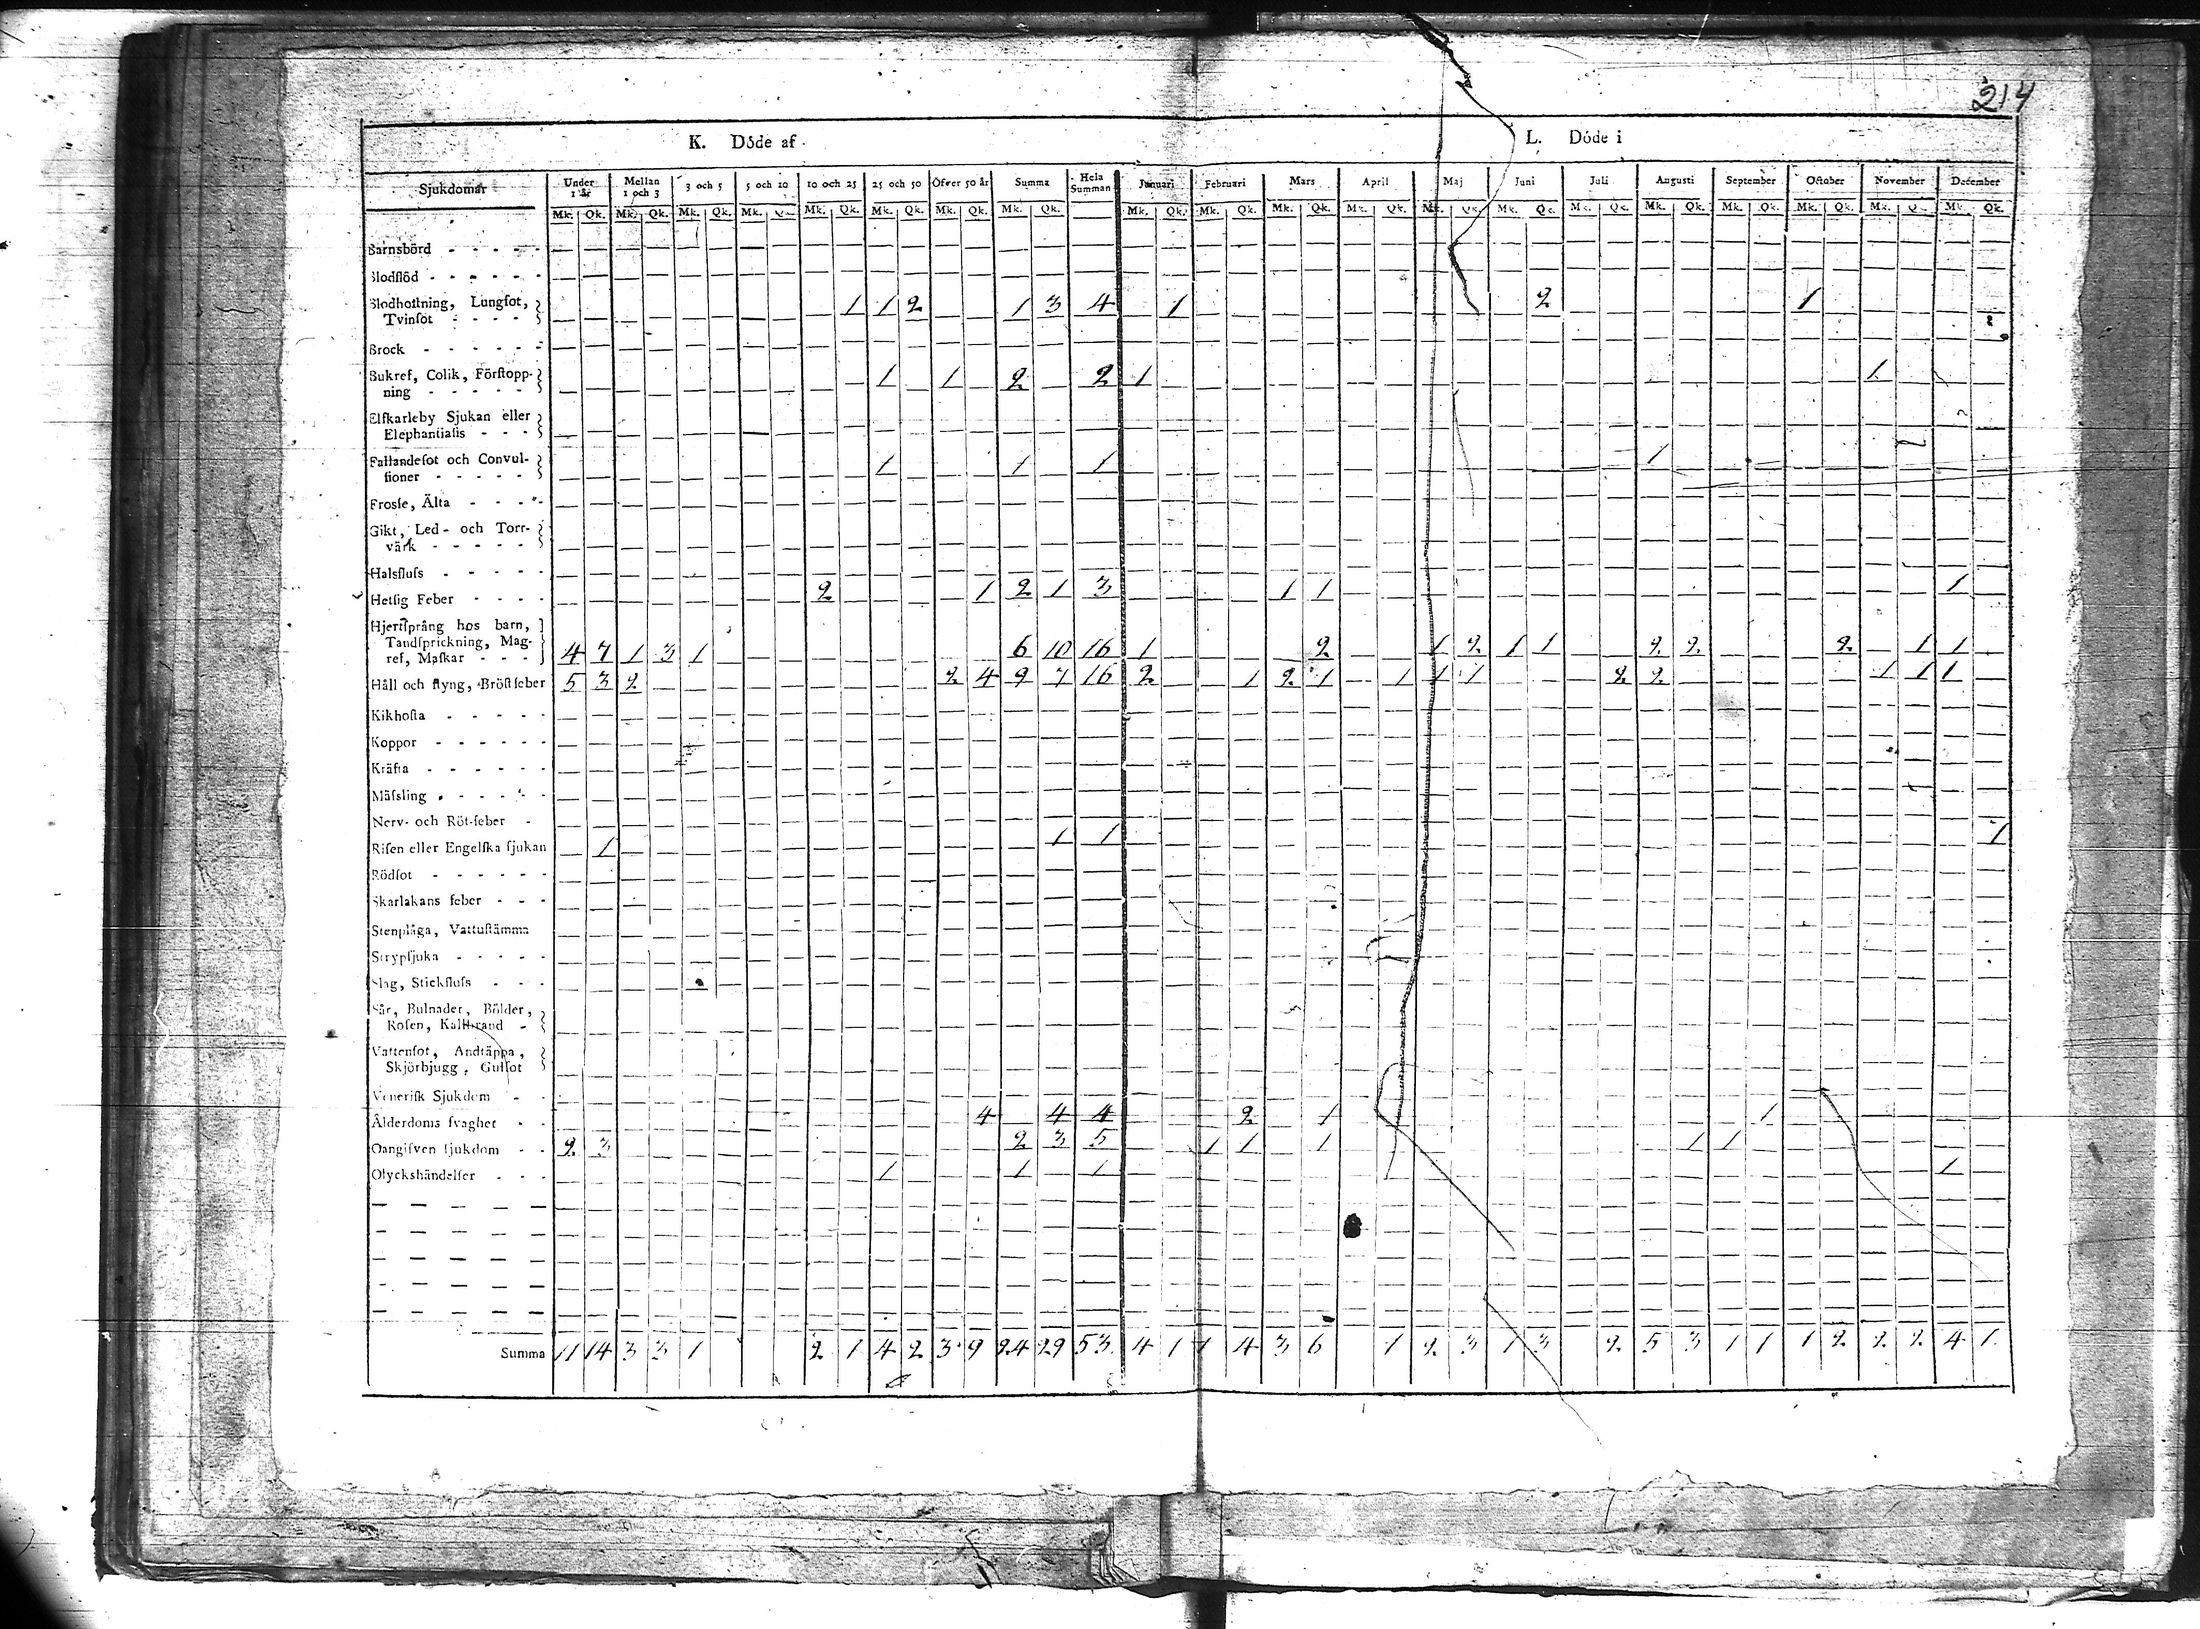 214
K. Döde af L. Döde i
Sjukdomar Under 1 år Mellan 1 och 3 3 och 5 5 och 10 10 och 25 25 och 50 Öfver 50 år Summa Hela Summan Januari Februari Mars April Maj Juni Juli Augusti September October November December
Mk. Qk. Mk. Qk. Mk. Qk. Mk. Qk. Mk. Qk. Mk. Qk. Mk. Qk. Mk. Qk. Mk. Qk. Mk. Qk. Mk. Qk. Mk. Qk. Mk. Qk. Mk. Qk. Mk. Qk. Mk. Qk. Mk. Qk. Mk. Qk. Mk. Qk. Mk. Qk.
Barnsbörd - - - - -
Blodflöd - - - - - -
Blodhostning, Lungsot,
Tvinsot - - - - 1 1 2 1 3 4 1 2 1
Brock - - - - - -
Bukref, Colik, Förstopp-
ning - - - - - 1 1 2 2 1 1
Elfkarleby Sjukan eller
Elephantiasis - - -
Fallandesot och Convul-
sioner - - - - - 1 1 1 1
Frossе, Älta - - - -
Gikt, Led- och Torr-
värk - - - - -
Halsfluss - - - - -
Hetsig Feber - - - - 2 1 2 1 3 1 1 1
Hjertsprång hos barn,
Tandsprickning, Mag-
ref, Maskar - - - 4 7 1 3 1 6 10 16 1 2 1 2 1 1 2 2 2 1 1
Håll och styng, Bröstfeber 5 3 2 2 4 9 7 16 2 1 2 1 1 1 1 2 2 1 1 1
Kikhosta - - - - -
Koppor - - - - - -
Kräfta - - - - - -
Mässling - - - - - -
Nerv- och Röt-feber -
Risen eller Engelska sjukan 1 1 1 1
Rödsot - - - - - -
Skarlakans feber - - -
Stenplåga, Vattustämma
Strypsjuka - - - - -
Slag, Stickfluss - - -
Sår, Bulnader, Bölder,
Rosen, Kallbrand -
Vattensot, Andtäppa,
Skjörbjugg, Gulsot
Venerisk Sjukdom - -
Ålderdoms svaghet - - 4 4 4 2 1 1
Oangifven sjukdom - - 2 3 2 3 5 1 1 1 1 1
Olyckshändelser - - - 1 1 1 1
Summa 11 14 3 3 1 2 1 4 2 3 9 24 29 53 4 1 1 4 3 6 1 2 3 1 3 2 5 3 1 1 1 2 2 2 4 1